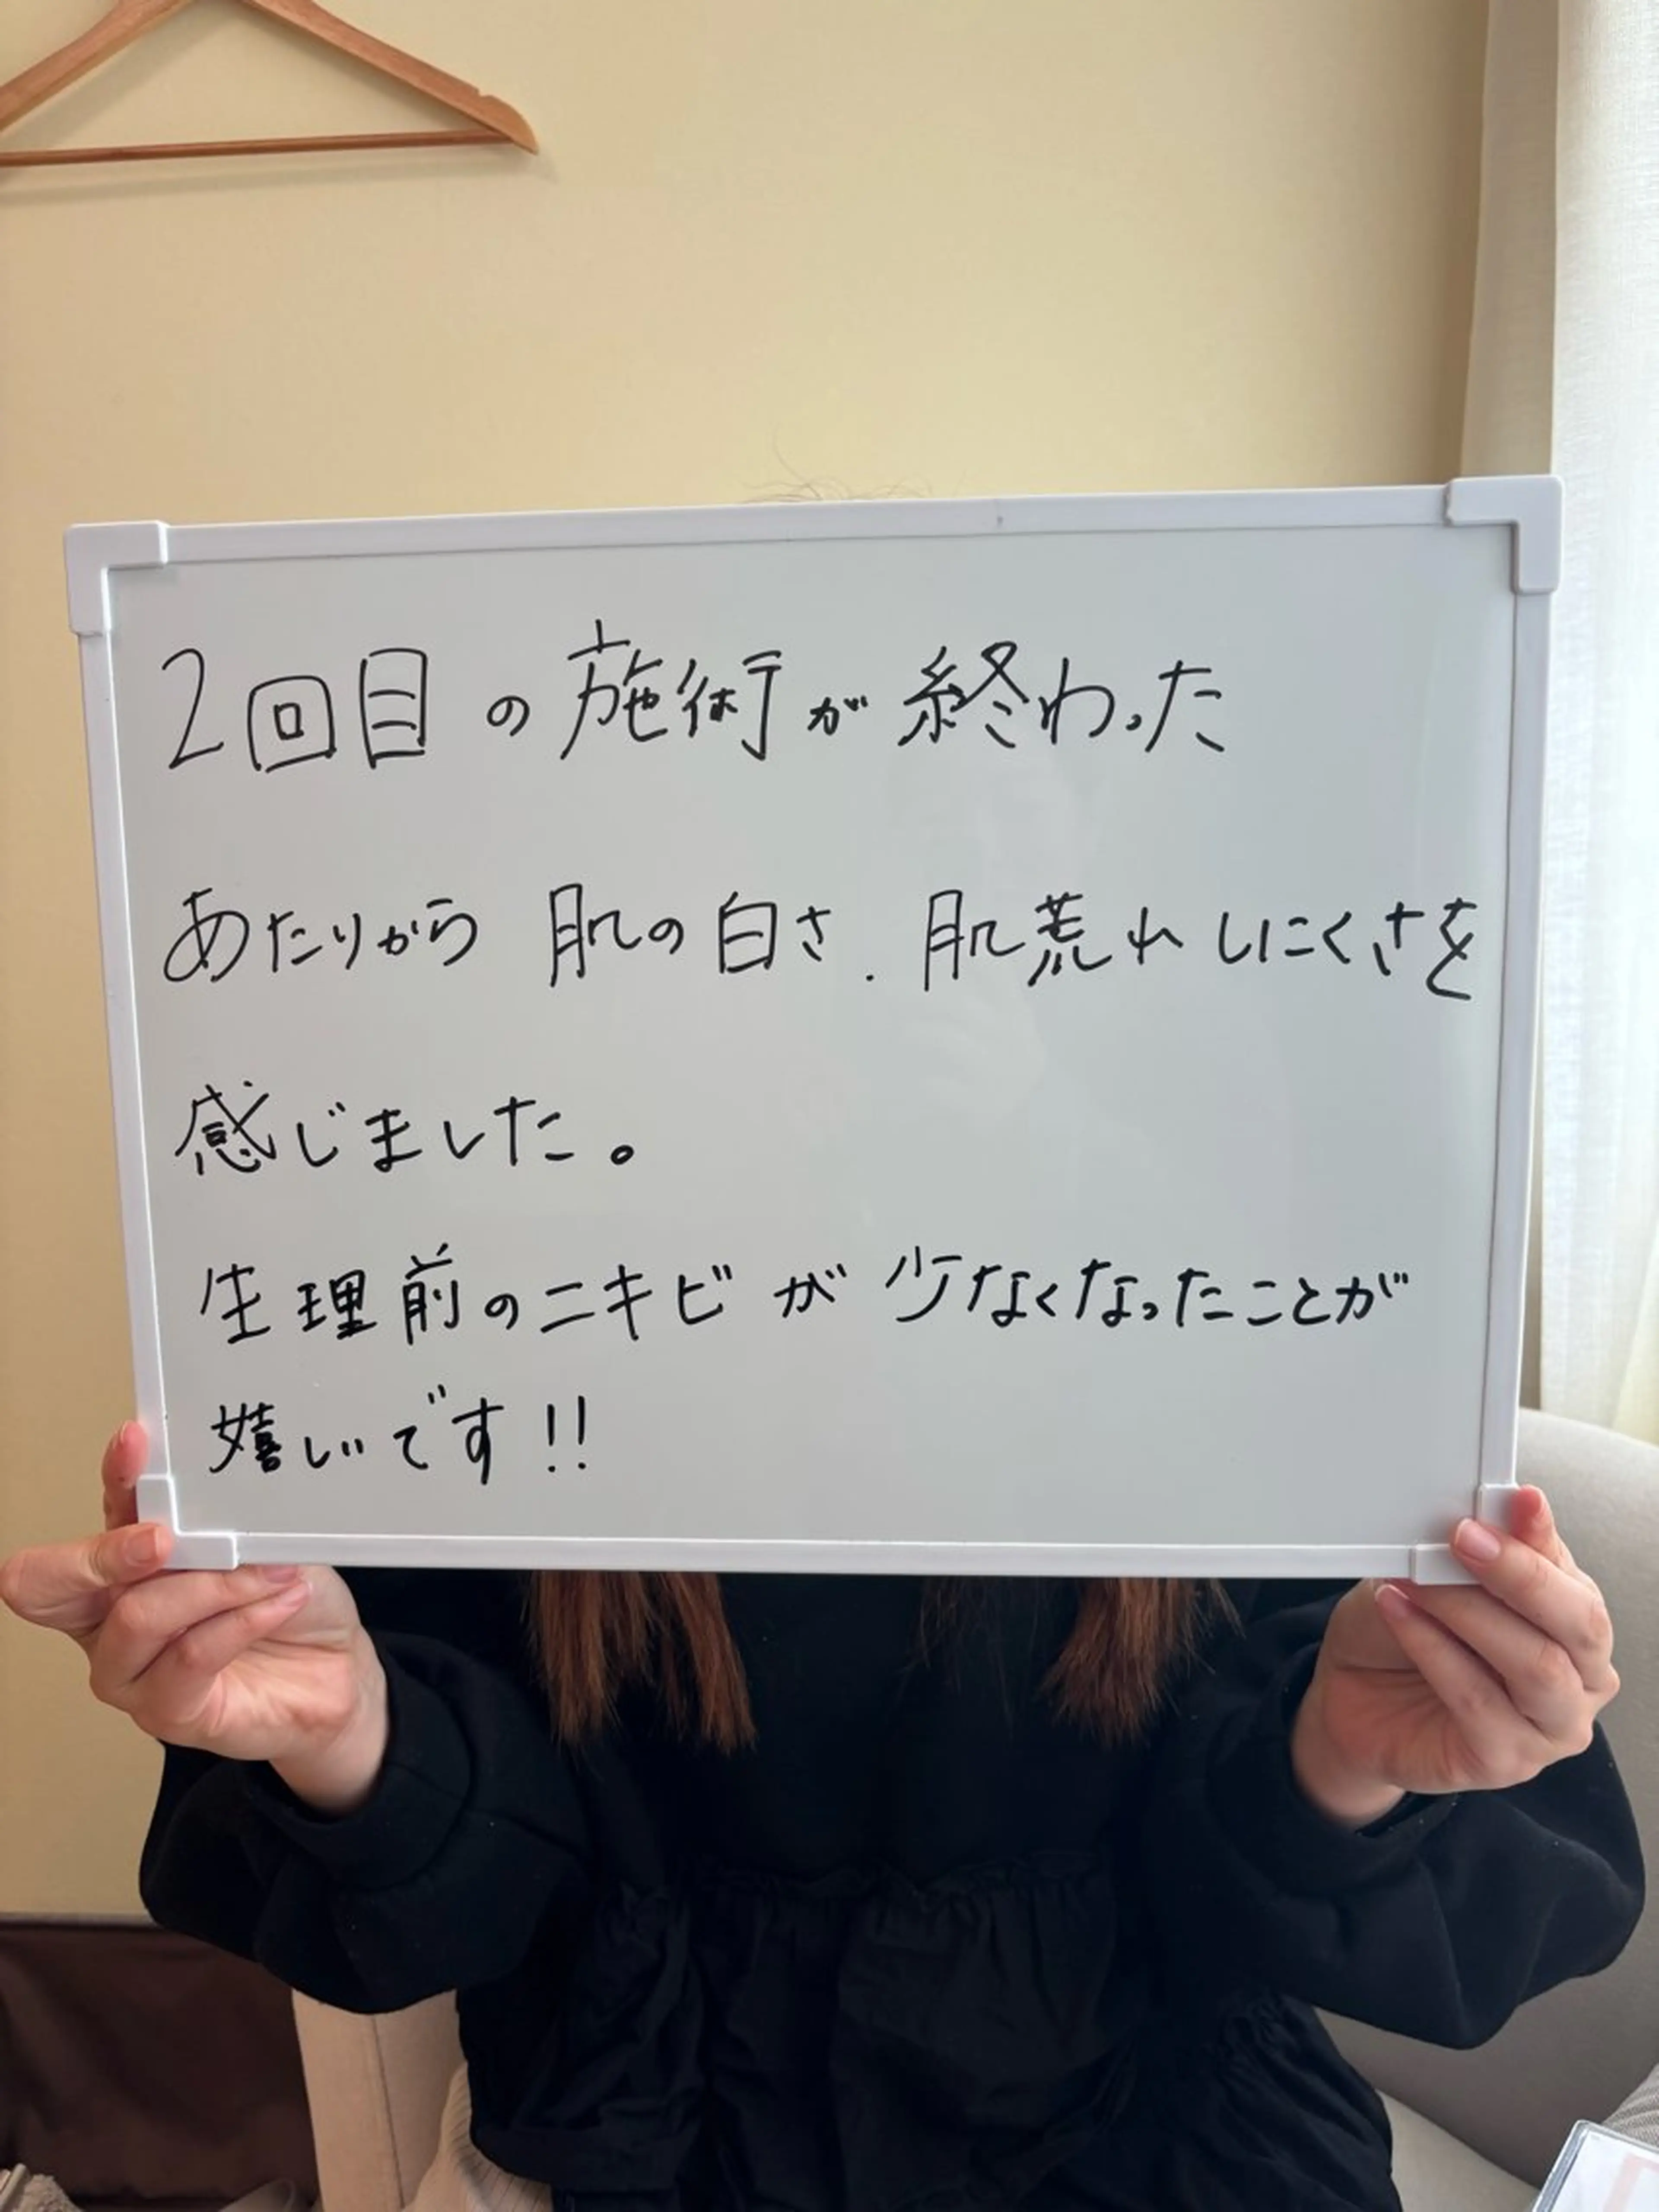 2回目の施術が終わった
あたりから 肌の白さ、肌荒れしにくさを
感じました。
生理前のニキビが少なくなったことが
嬉しいです!!